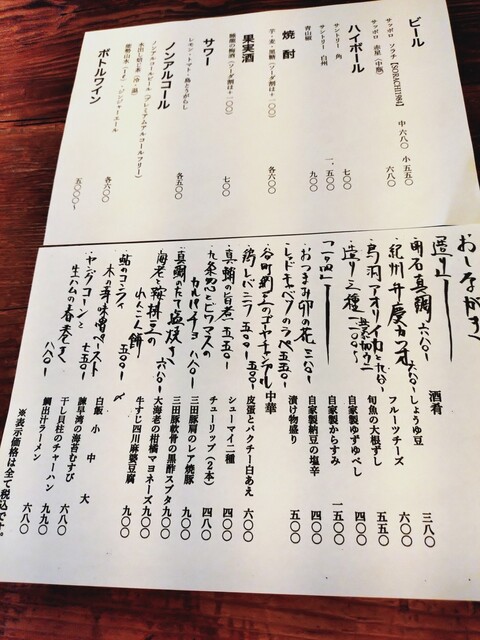 ビール
サッポロ ソラチ【SORACHI1984】 中 六八〇 小 五五〇
サッポロ 赤星（中瓶） 六八〇
ハイボール
サントリー 角 七〇〇
サントリー 白州 一、五〇〇
青山椒 九〇〇
焼酎
芋・麦・黒糖（ソーダ割は＋一〇〇） 各六〇〇
果実酒
（ソーダ割は＋一〇〇） 七〇〇
サワー
レモン・トマト・島とうがらし 各五〇〇
ノンアルコール
ノンアルコールビール（プレミアムアルコールフリー）
水出し焙じ茶（冷・温）
能勢山水（サイダー・ジンジャーエール 各六〇〇
ボトルワイン 五〇〇〇〜
おしながき
造り
明石真鯛 六八〇
紀州弁慶かつを
鳥羽アオリイカ
造り三種
一の皿
おつまみ卯の花 三八〇
レッドキャベツのラペ 五五〇
谷町納豆のゴヤチャンプル
鶏レバニラ 五五〇
真蛸の旨煮 五五〇
九条葱とビアマスの
カルパッチョ 八八〇
真鯛のたて塩焼き
海老と梅枝豆の
れんこん餅 六八〇
鮎のコンフィ
木の芽味噌ペースト 五〇〇
ヤングコーンと
生ハムの春巻き 七五〇
酒肴
しょうゆ豆 三八〇
フルーツチーズ 六〇〇
旬魚の大根ずし 五五〇
自家製ゆずゆべし 四〇〇
自家製からすみ 一五〇〇
自家製納豆の塩辛 四〇〇
漬け物盛り 五〇〇
中華
皮蛋とパクチー白あえ 六〇〇
シューマイ二種 四〇〇
チューリップ（2本） 四八〇
三田豚肩のレア焼豚 九〇〇
三田豚軟骨の黒酢スブタ 九〇〇
大海老の柑橘マヨネーズ 九〇〇
牛すじ四川麻婆豆腐 九〇〇
〆
白飯 小 中 大
諫早湾の海苔むすび
干し貝柱のチャーハン 六八〇
鯛出汁ラーメン 九八〇
※表示価格は全て税込です。